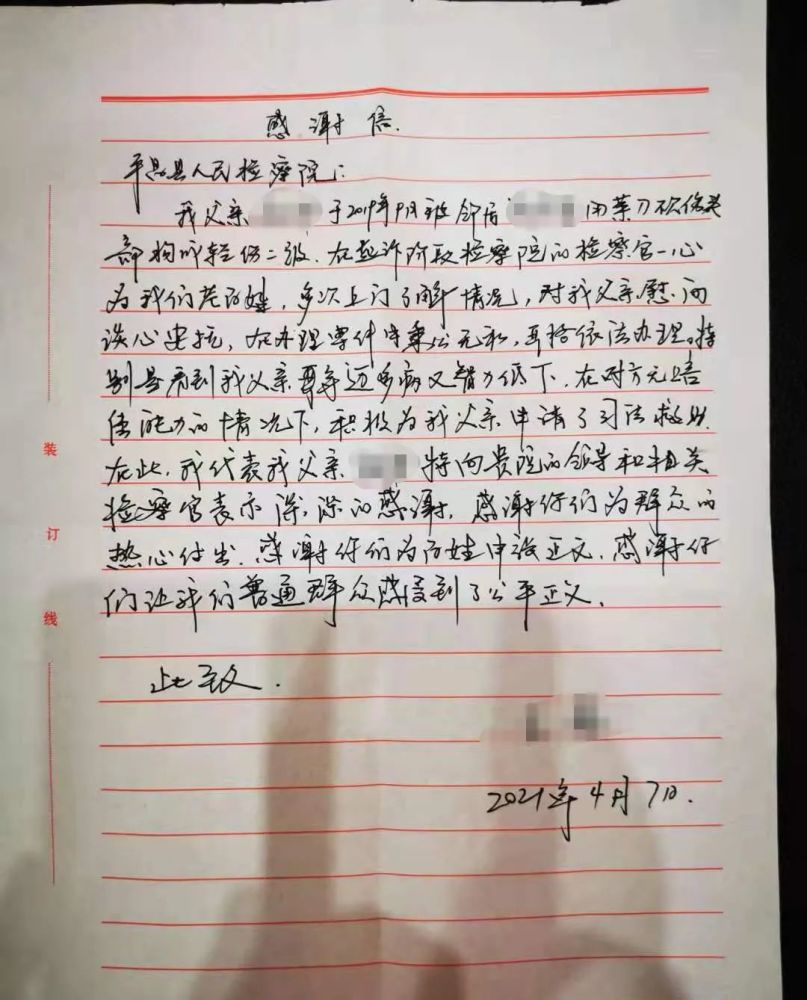 感谢信.
平昌县人民检察院:
我父亲 于2019年9月被邻居 用菜刀砍伤头
部构成轻伤二级.在起诉阶段检察院的检察官一心
为我们老百姓,多次上门了解情况,对我父亲慰问
谈心安抚,在办理案件中秉公无私,严格依法办理。特
别是看到我父亲 年迈多病又智力低下.在对方无赔
偿能力的情况下,积极为我父亲申请了司法救助.
在此,我代表我父亲 特向贵院的领导和相关
检察官表示深深的感谢,感谢你们为群众的
热心付出.感谢你们为百姓申张正义.感谢你
们让我们普通群众感受到了公平正义.
此致.
2021年4月7日.
装
订
线